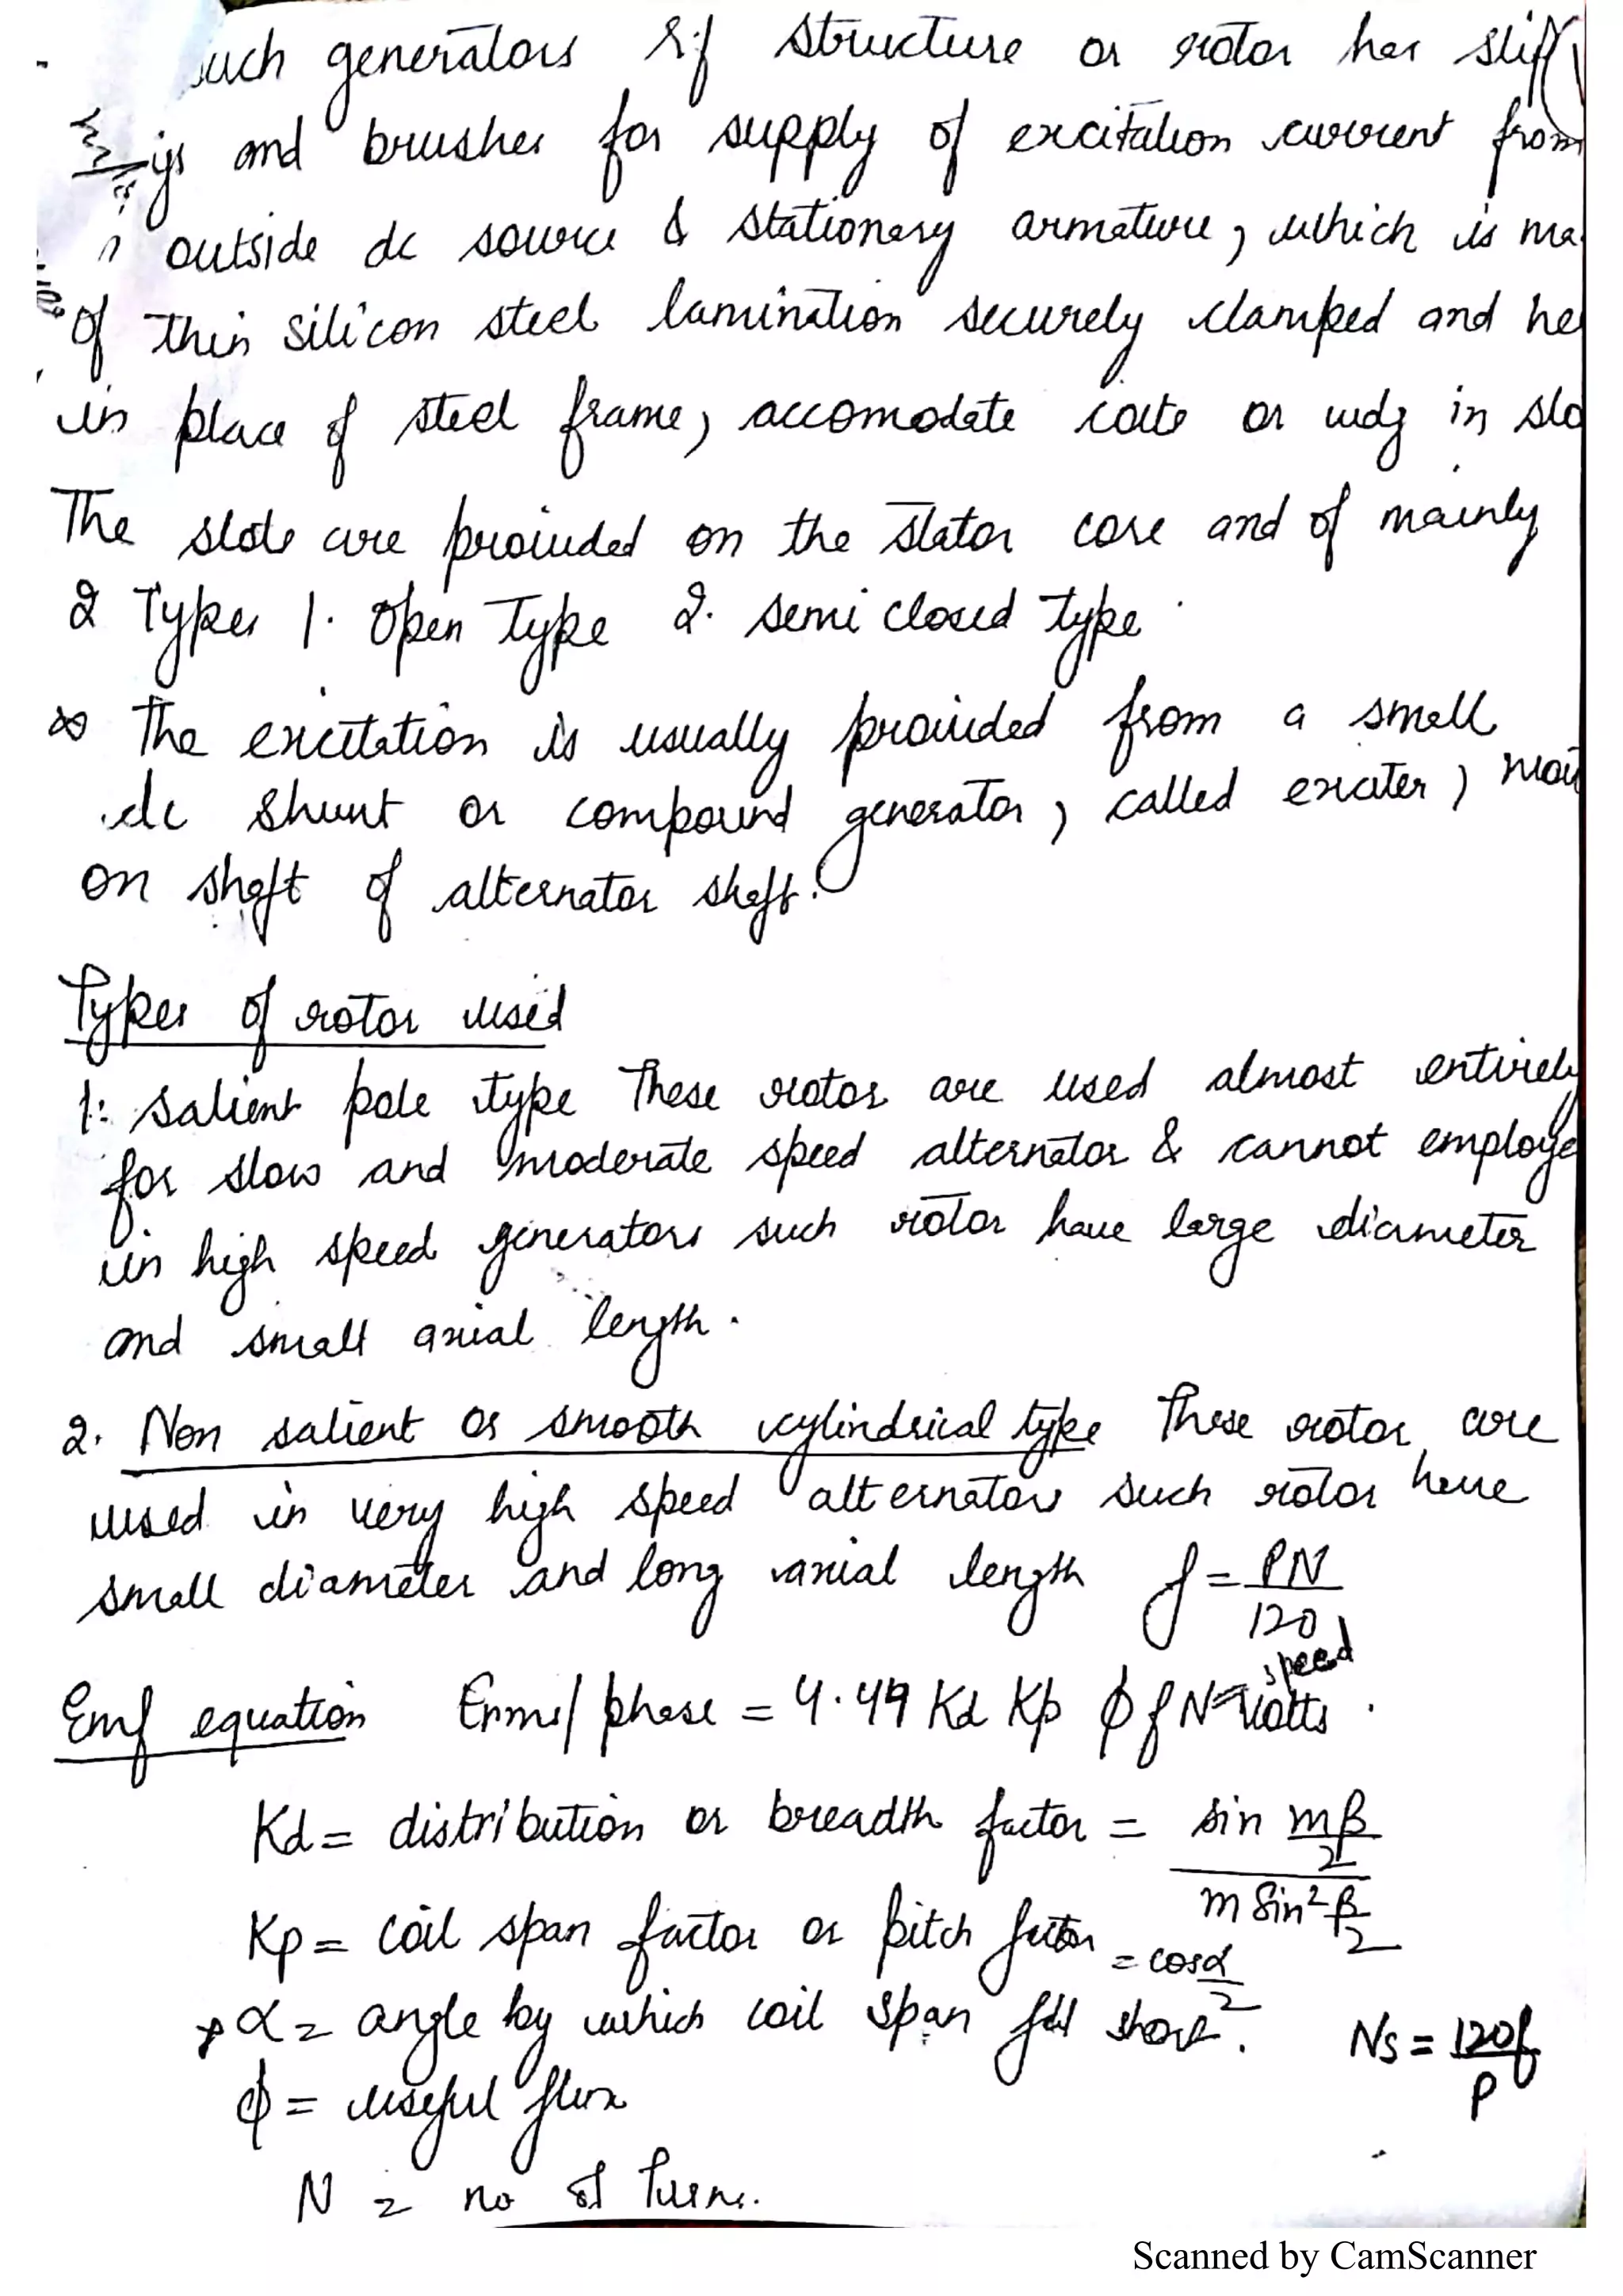 such generators rif structure or rotor has slip
and brushes for supply of excitation current from
outside dc source & stationary armature, which is ma
of thin silicon steel lamination securely clamped and he
in place of steel frame, accomodate coils or wdg in slo
The slots are provided on the stator core and of mainly
2 Types 1. Open Type 2. semi closed type.
The excitation is usually provided from a small
dc shunt or compound generator, called exciter, mou
on shaft of alternator shaft.
Types of rotor used
1: salient pole type These rotor are used almost entirely
for slow and moderate speed alternator & cannot employe
in high speed generators such rotor have large diameter
and small axial length.
2. Non salient or smooth cylindrical type These rotor are
used in very high speed alternators such rotor have
small diameter and long axial length f = PN/120
speed
Emf equation Erms/phase = 4.44 Kd Kp φ f N volts.
Kd = distribution or breadth factor = sin mβ/2 / m sin² β/2
Kp = coil span factor or pitch factor = cos α/2
α = angle by which coil span fall short.
Ns = 120f/P
φ = useful flux
N = no of Turns.
Scanned by CamScanner